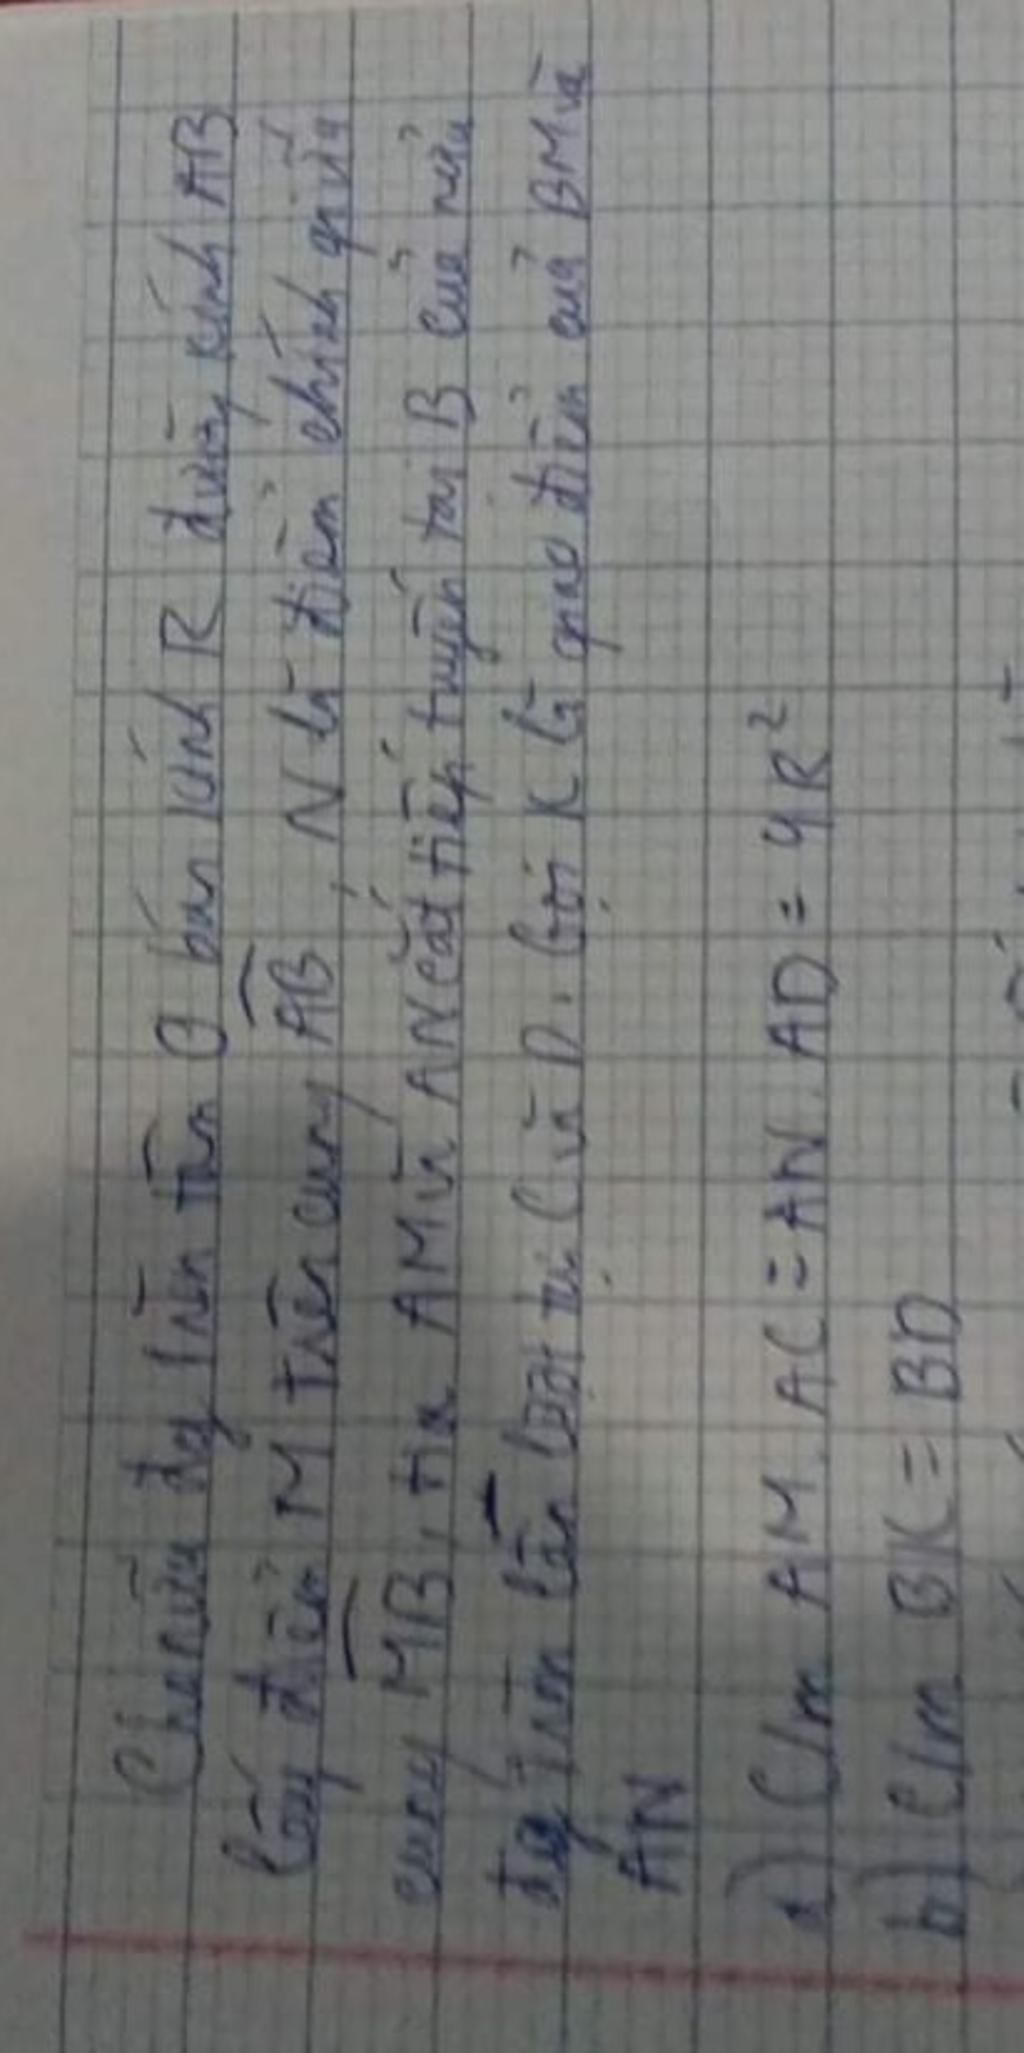 Cho nửa đg tròn tâm O bán kính R đường kính AB
lấy điểm M trên cung AB, N là điểm chính giữa
cung MB, tia AM và AN cắt tiếp tuyến tại B của nửa
đg tròn lần lượt tại C và D. Gọi K là giao điểm của BM và
AN
a) C/m AM.AC = AN.AD = 4R²
b) C/m BK = BD